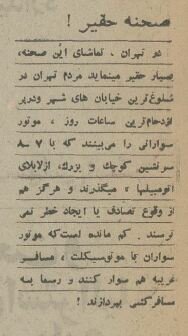 صحنه حقیر !
در تهران ، تماشای این صحنه،
بسیار حقیر مینماید مردم تهران در
شلوغ‌ترین خیابان های شهر ودرپر
ازدحام‌ترین ساعات روز ، موتور
سوارانی را می‌بینند که با ۷ ـ ۸
سرنشین کوچک و بزرگ، ازلابلای
اتومبیلها ، میگذرند و هرگز هم
از وقوع تصادف یا ایجاد خطر نمی
ترسند . کم مانده است‌که موتور
سواران با موتوسیکلت ، مسافر
غریبه هم سوار کنند و رسما به
مسافرکشی بپردازند !